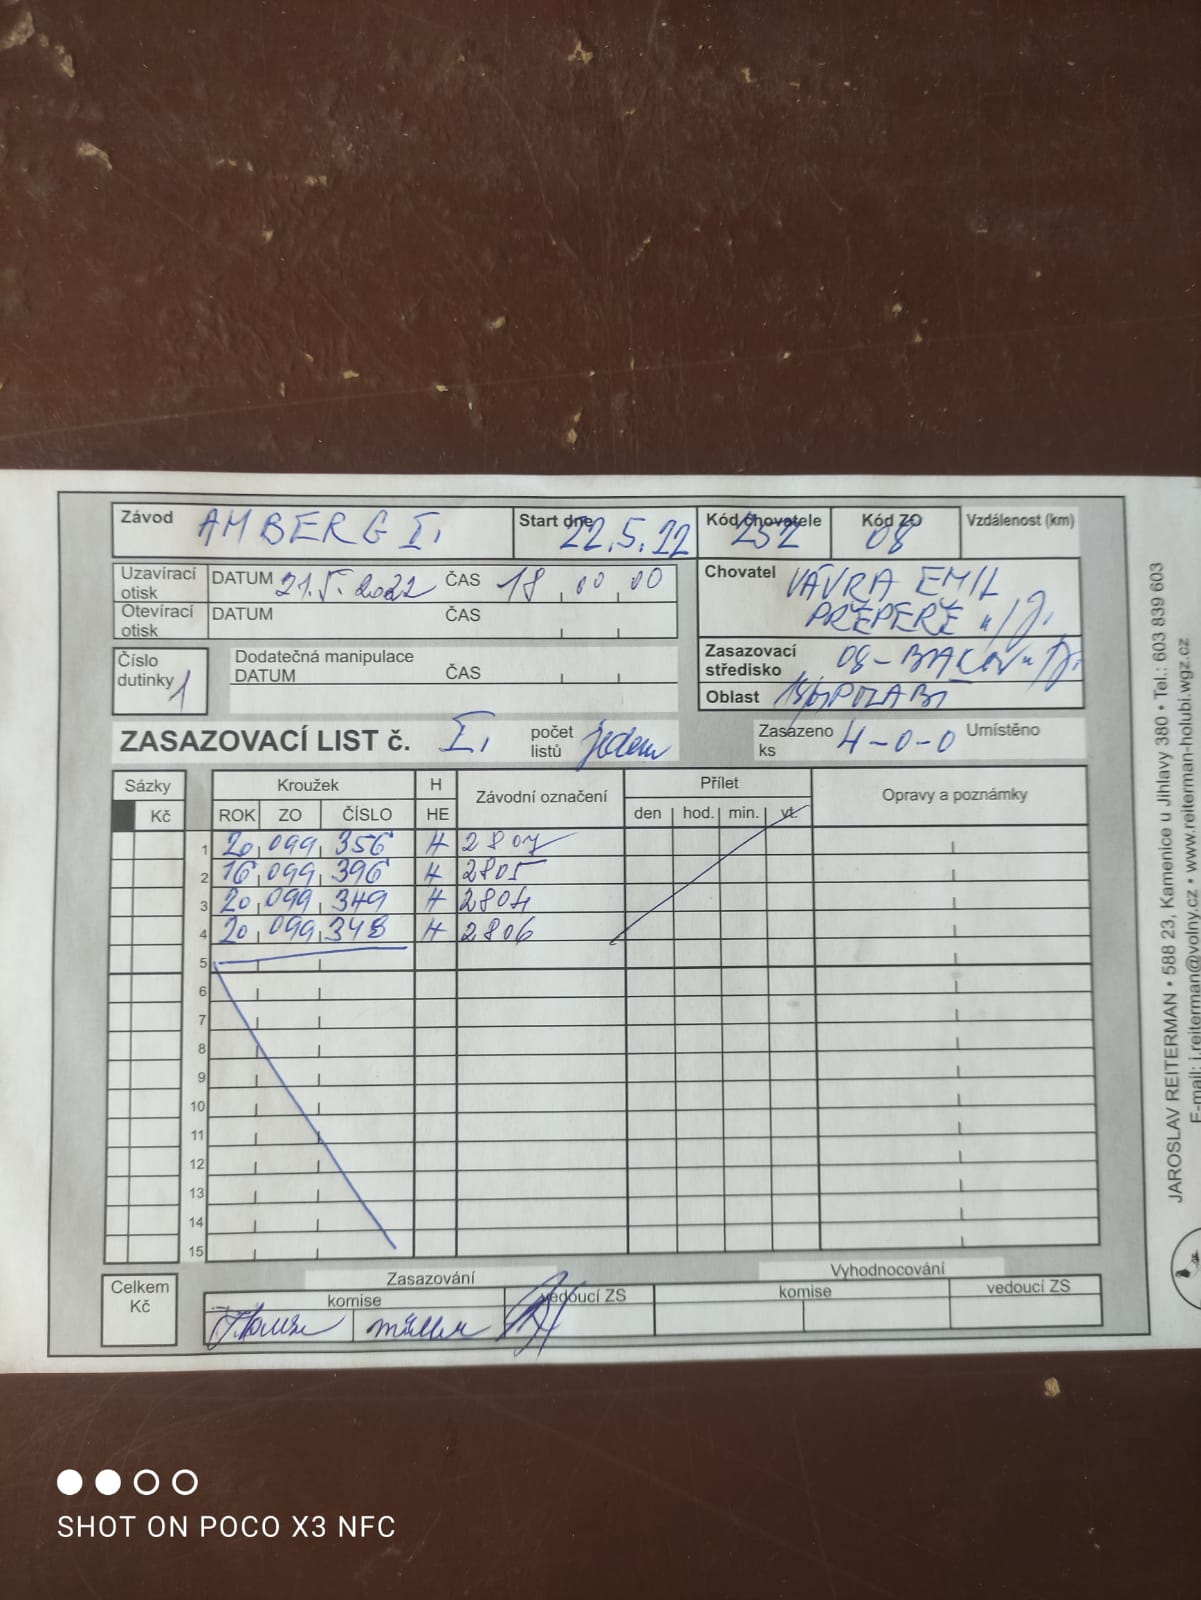 Závod AMBERG I. Start dne 22.5.22 Kód chovatele 252 Kód ZO 08 Vzdálenost (km)
Uzavírací otisk DATUM 21.5.2022 ČAS 18 00 00
Otevírací otisk DATUM ČAS
Chovatel VÁVRA EMIL
PŘEPEŘE
Číslo dutinky 1
Dodatečná manipulace
DATUM ČAS
Zasazovací středisko 08-BAKOV n/J.
Oblast POLABÍ
ZASAZOVACÍ LIST č. I. počet listů jeden Zasazeno ks 4-0-0 Umístěno
Sázky Kroužek H Závodní označení Přílet Opravy a poznámky
Kč ROK ZO ČÍSLO HE den hod. min. vt.
1 20 099 356 H 2807
2 16 099 396 H 2805
3 20 099 349 H 2804
4 20 099 348 H 2806
5
6
7
8
9
10
11
12
13
14
15
Celkem Kč
Zasazování Vyhodnocování
komise vedoucí ZS komise vedoucí ZS
JAROSLAV REITERMAN • 588 23, Kamenice u Jihlavy 380 • Tel.: 603 839 603
E-mail: j.reiterman@volny.cz • www.reiterman-holubi.wgz.cz
SHOT ON POCO X3 NFC